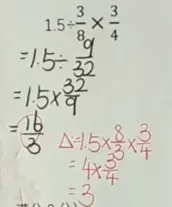 1.5÷3/8×3/4
=1.5÷9/32
=1.5×32/9
=16/3
△=1.5×8/3×3/4
=4×3/4
=3